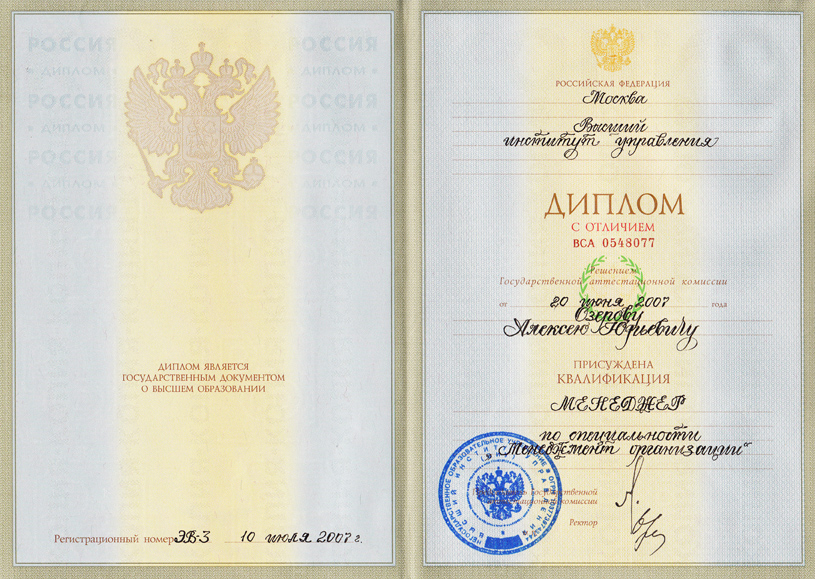 РОССИЯ РОССИЯ
« ДИПЛОМ « ДИПЛОМ »
РОССИЯ РОССИЯ
« ДИПЛОМ « ДИПЛОМ »
РОССИЯ РОССИЯ
« ДИПЛОМ « ДИПЛОМ »
РОССИЯ РОССИЯ
ДИПЛОМ ЯВЛЯЕТСЯ
ГОСУДАРСТВЕННЫМ ДОКУМЕНТОМ
О ВЫСШЕМ ОБРАЗОВАНИИ
Регистрационный номер ЭВ-3 10 июля 2007 г.
РОССИЙСКАЯ ФЕДЕРАЦИЯ
Москва
Высший
институт управления
ДИПЛОМ
С ОТЛИЧИЕМ
ВСА 0548077
Решением
Государственной аттестационной комиссии
от 20 июня 2007 года
Озерову
Алексею Юрьевичу
ПРИСУЖДЕНА
КВАЛИФИКАЦИЯ
МЕНЕДЖЕР
по специальности
„Менеджмент организации“
государственной
комиссии
Ректор
НЕГОСУДАРСТВЕННОЕ ОБРАЗОВАТЕЛЬНОЕ УЧРЕЖДЕНИЕ
ВЫСШИЙ ИНСТИТУТ УПРАВЛЕНИЯ